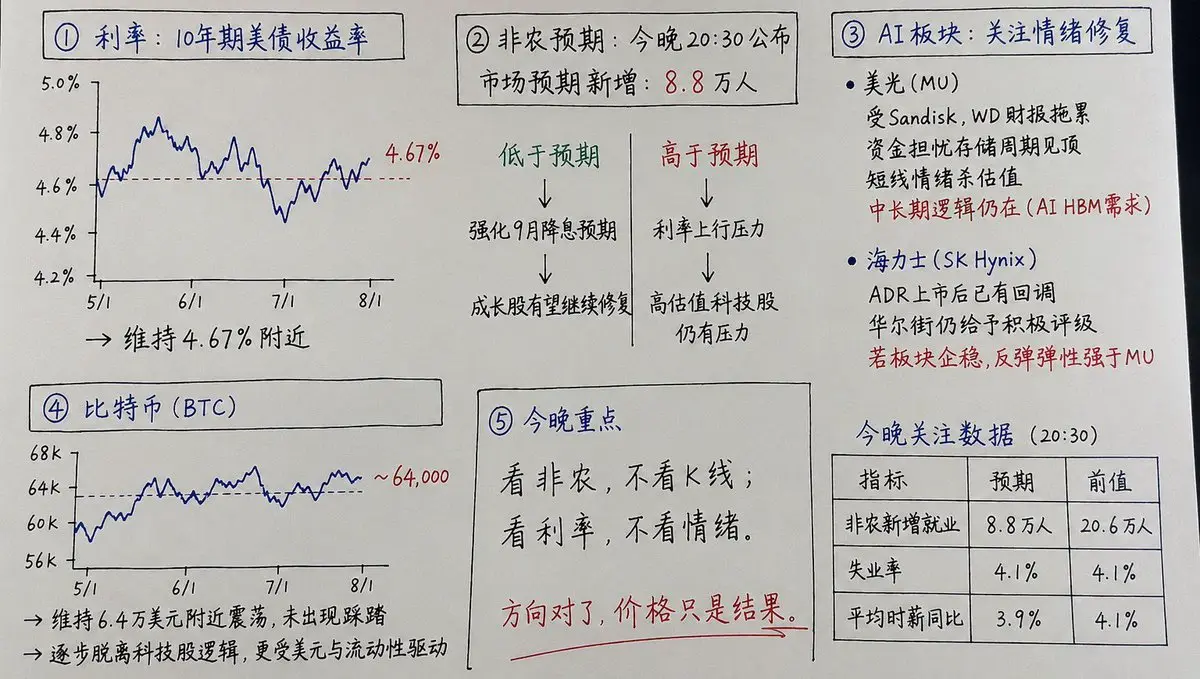 ① 利率：10年期美债收益率
5.0%
4.8%
4.6%
4.4%
4.2%
4.67%
5/1 6/1 7/1 8/1
→ 维持4.67%附近
② 非农预期：今晚20:30公布
市场预期新增：8.8万人
低于预期
↓
强化9月降息预期
↓
成长股有望继续修复
高于预期
↓
利率上行压力
↓
高估值科技股
仍有压力
③ AI板块：关注情绪修复
• 美光(MU)
受Sandisk, WD财报拖累
资金担忧存储周期见顶
短线情绪杀估值
中长期逻辑仍在(AI HBM需求)
• 海力士(SK Hynix)
ADR上市后已有回调
华尔街仍给予积极评级
若板块企稳,反弹弹性强于MU
④ 比特币(BTC)
68K
64K
60K
56K
~64,000
5/1 6/1 7/1 8/1
→ 维持6.4万美元附近震荡,未出现踩踏
→ 逐步脱离科技股逻辑,更受美元与流动性驱动
⑤ 今晚重点
看非农,不看K线;
看利率,不看情绪。
方向对了,价格只是结果。
今晚关注数据 (20:30)
指标 预期 前值
非农新增就业 8.8万人 20.6万人
失业率 4.1% 4.1%
平均时薪同比 3.9% 4.1%